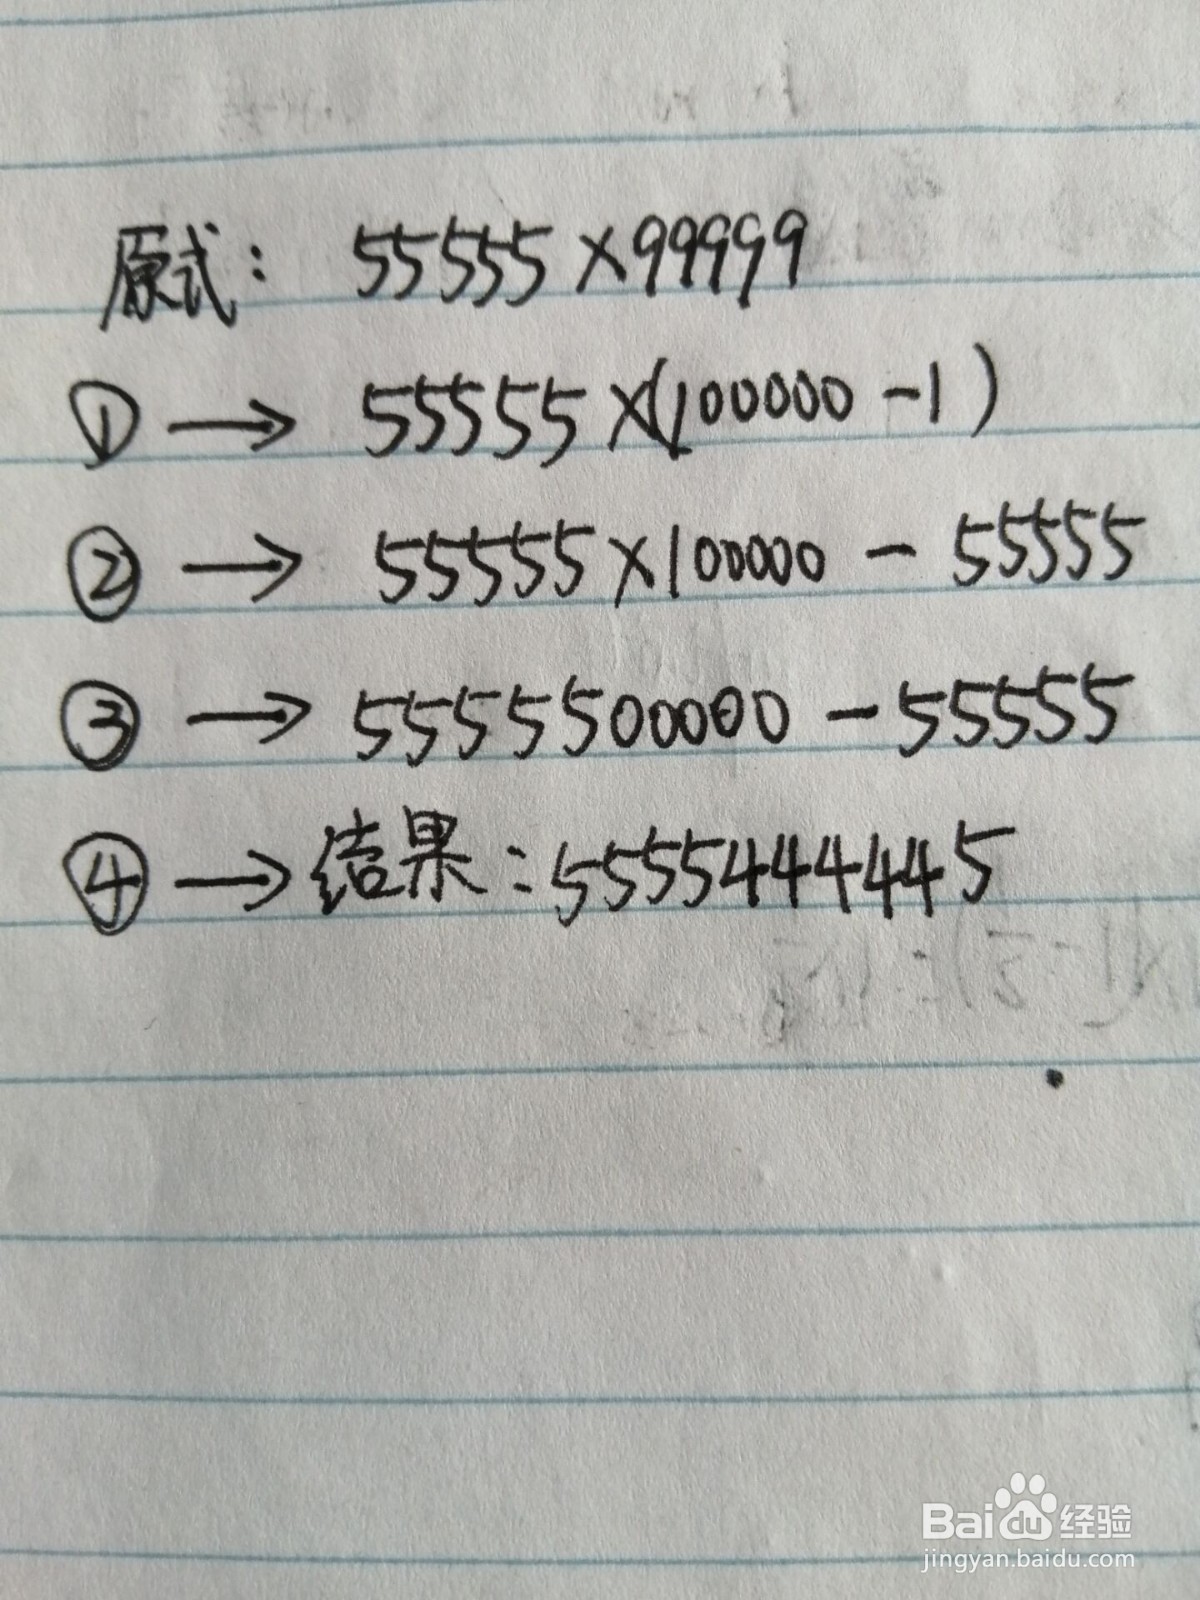 原式: 55555×99999
① → 55555×(100000-1)
② → 55555×100000-55555
③ → 5555500000-55555
④ → 结果:5555444445
Baidu 经验
jingyan.baidu.com